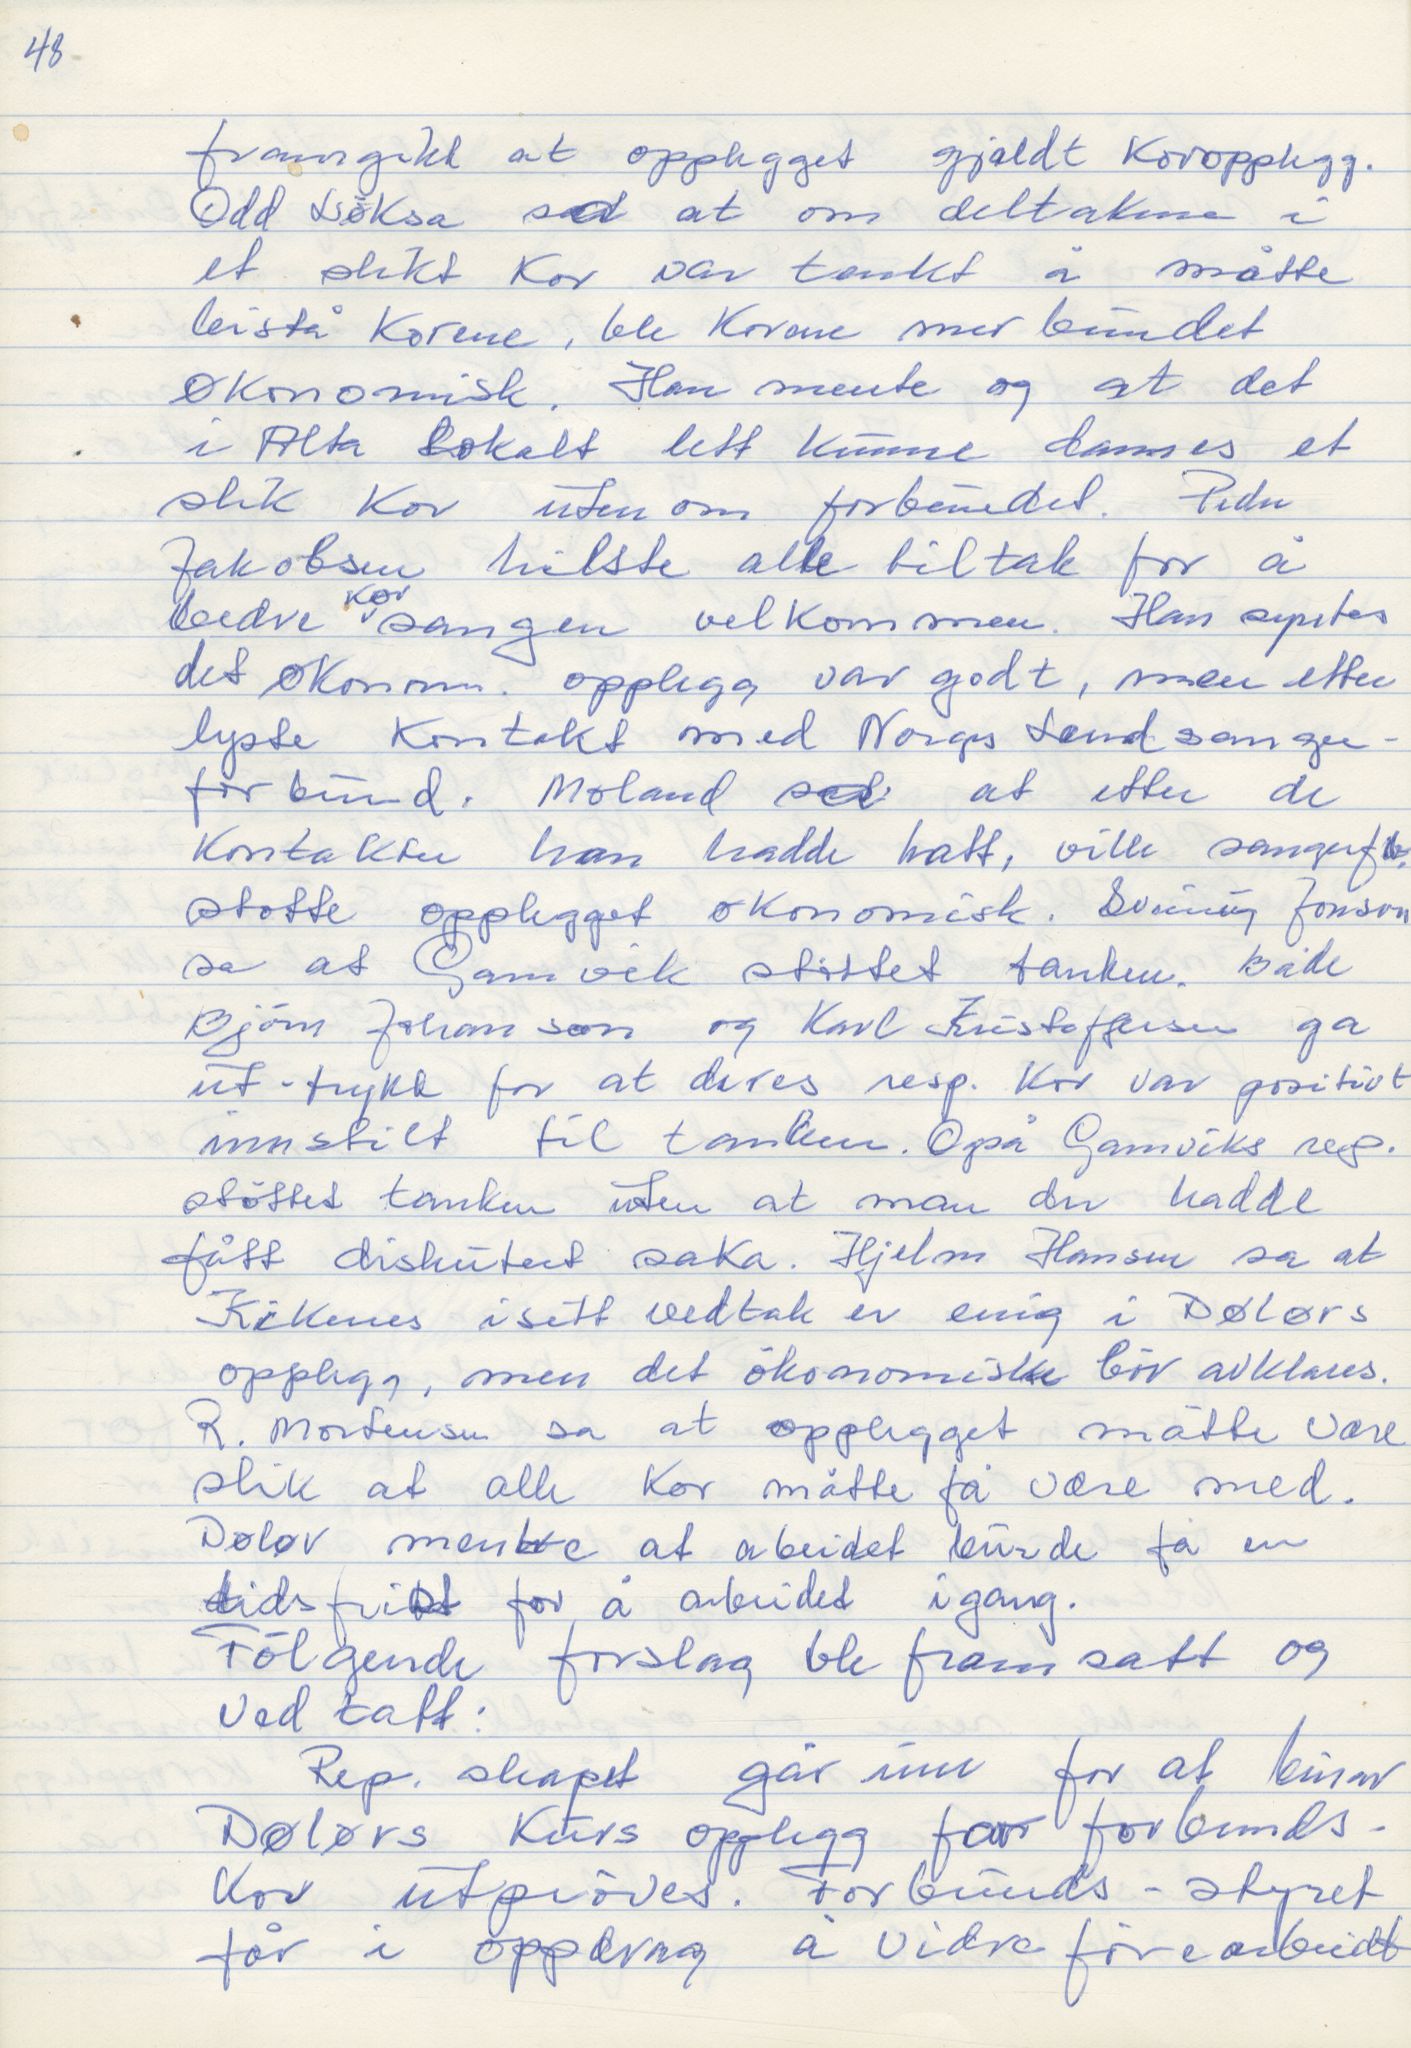 48
framgikk at opplegget gjaldt Koropplegg.
Odd Løksa sa at om deltakene i
et slikt Kor var tenkt å måtte
bistå Korene, ble Korene mer bundet
økonomisk. Han mente og at det
i Alta lokalt lett kunne dannes et
slik Kor utenom forbundet. Peder
Jakobsen hilste alle tiltak for å
bedre korsangen velkommen. Han syntes
det økonom. opplegg var godt, men etter
lyste Kontakt med Norges Landssanger-
forbund. Moland sa at etter de
Kontakter han hadde hatt, ville sangerfb.
støtte opplegget økonomisk. Svinung Jonson
sa at Gamvik støttet tanken. Både
Bjørn Johanson og Karl Kristoffersen ga
ut-trykk for at deres resp. Kor var positivt
innstilt til tanken. Også Gamviks rep.
støttet tanken uten at man der hadde
fått diskutert saka. Hjelm Hansen sa at
Kirkenes i sitt vedtak er enig i Dølørs
opplegg, men det økonomiske bör avklares.
R. Mortensen sa at opplegget måtte være
slik at alle Kor måtte få være med.
Døløv mente at arbeidet burde få en
tidsfrist for å arbeidet igang.
Følgende forslag ble framsatt og
vedtatt:
Rep. skapet går inn for at Einar
Dølørs Kurs opplegg for forbunds-
Kor utprøves. Forbunds-styret
får i oppdrag å vidre förearbeidt